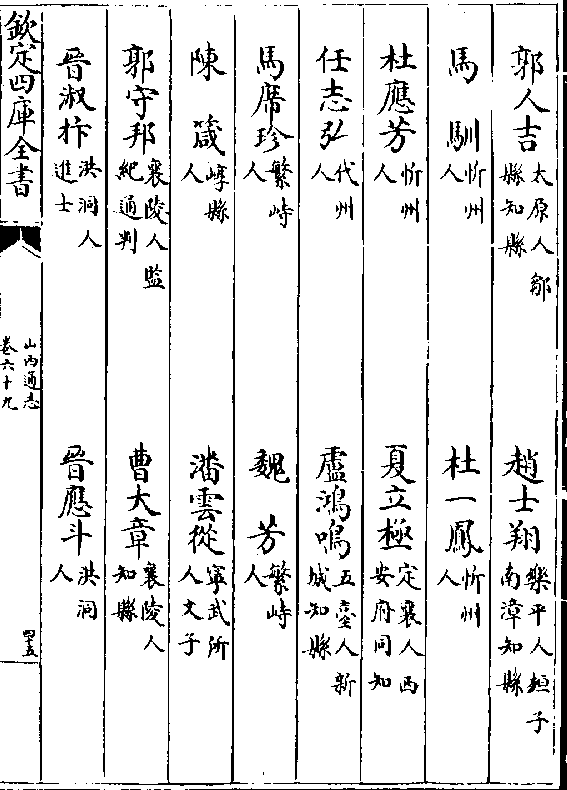 郭人吉 太原人鄒縣知縣 趙士翔 樂平人子南漳知縣
馬馴 忻州人 杜一鳳 忻州人
杜應芳 忻州人 夏立極 定襄人西安府同知
任志弘 代州人 盧鴻鳴 五臺人新城知縣
馬席珍 繁峙人 魏芳 繁峙人
陳箴 崞縣人 潘雲從 寧武所人文子
郭守邦 襄陵人監紀通判 曹大章 襄陵人知縣
晉淑抃 洪洞人進士 晉應斗 洪洞人
欽定四庫全書
山西通志
卷六十九
四十五